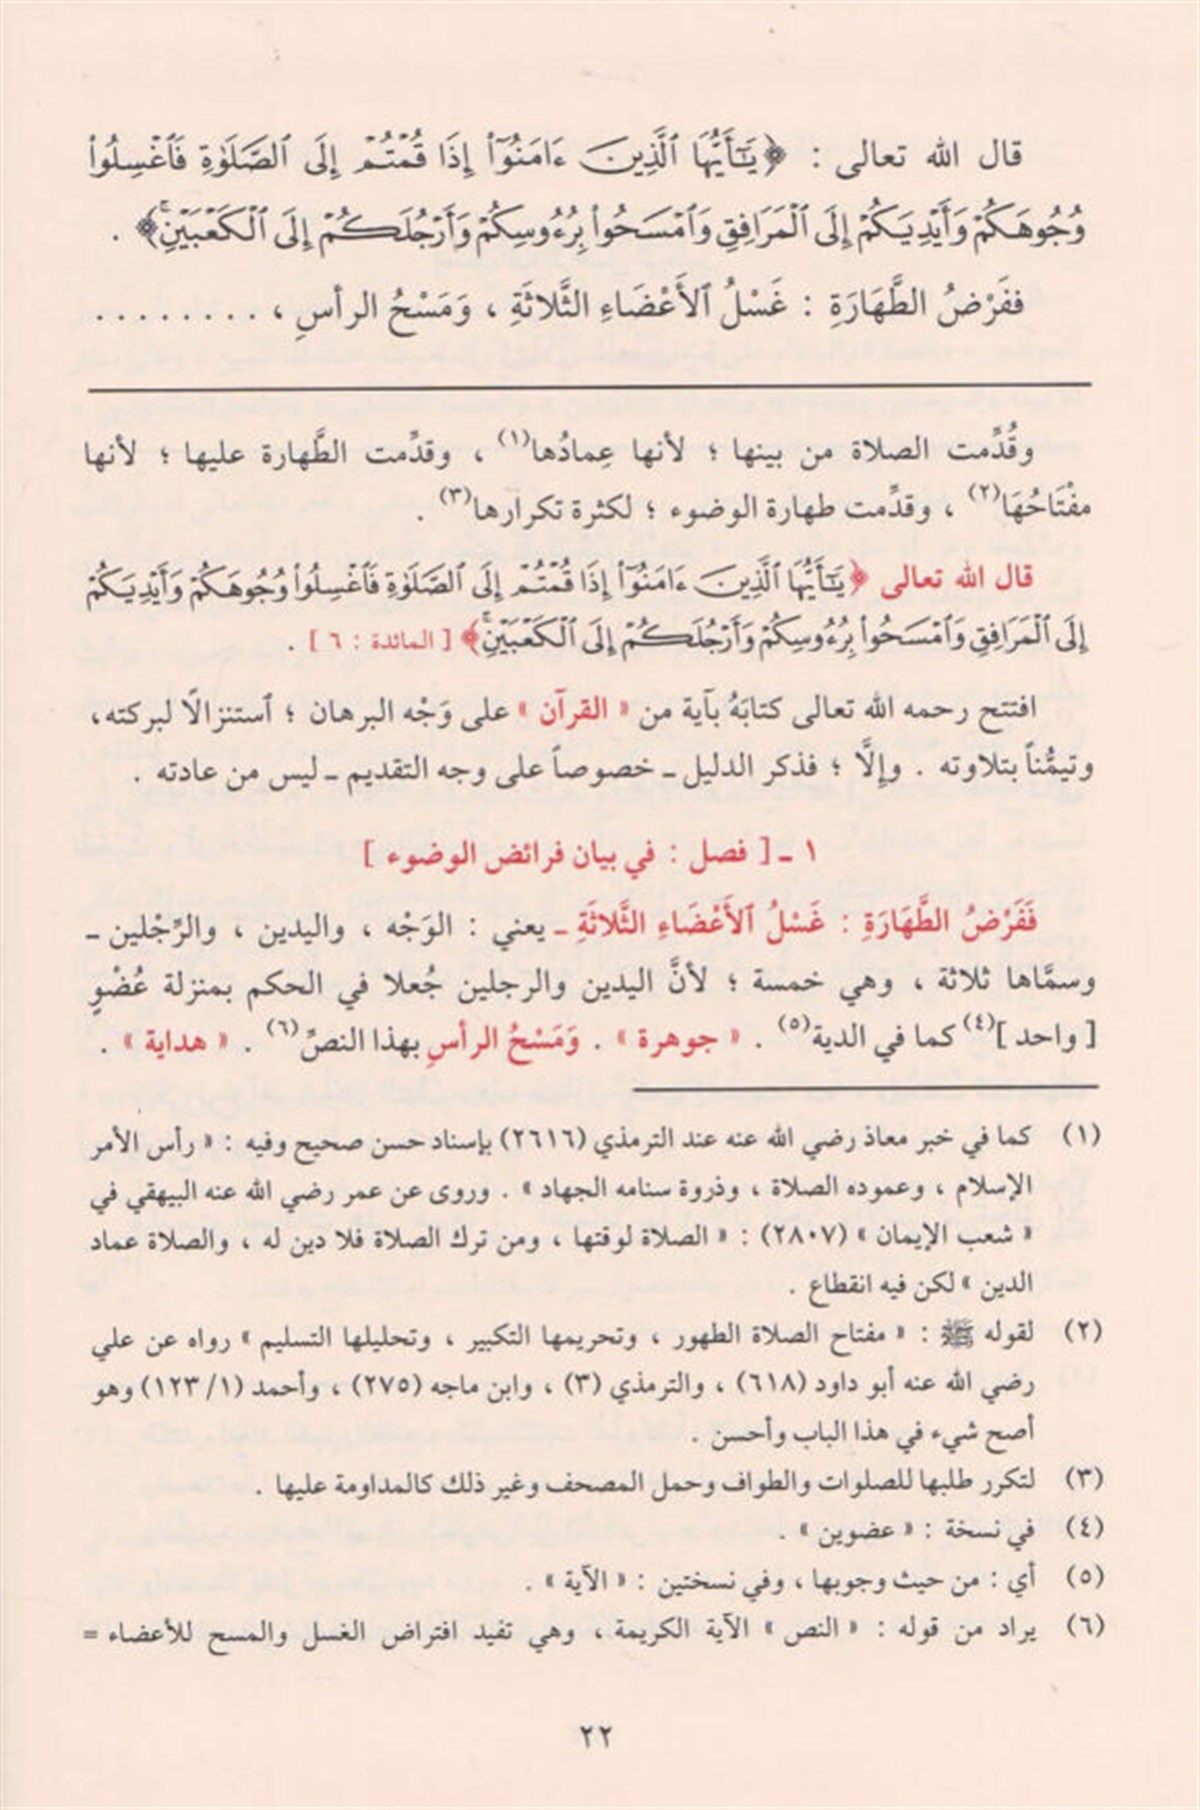 قال الله تعالى : ﴿يَٰٓأَيُّهَا ٱلَّذِينَ ءَامَنُوٓا۟ إِذَا قُمْتُمْ إِلَى ٱلصَّلَوٰةِ فَٱغْسِلُوا۟
وُجُوهَكُمْ وَأَيْدِيَكُمْ إِلَى ٱلْمَرَافِقِ وَٱمْسَحُوا۟ بِرُءُوسِكُمْ وَأَرْجُلَكُمْ إِلَى ٱلْكَعْبَيْنِۚ﴾ .
ففَرْضُ الطَّهَارَةِ : غَسْلُ ٱلأَعْضَاءِ الثَّلاثَةِ ، وَمَسْحُ الرأسِ ، . . . . . . . .
وقُدِّمت الصلاة من بينها ؛ لأنها عِمادُها(١) ، وقدِّمت الطَّهارة عليها ؛ لأنها
مفْتَاحُهَا(٢) ، وقدِّمت طهارة الوضوء ؛ لكثرة تكرارها(٣) .
قال الله تعالى ﴿يَٰٓأَيُّهَا ٱلَّذِينَ ءَامَنُوٓا۟ إِذَا قُمْتُمْ إِلَى ٱلصَّلَوٰةِ فَٱغْسِلُوا۟ وُجُوهَكُمْ وَأَيْدِيَكُمْ
إِلَى ٱلْمَرَافِقِ وَٱمْسَحُوا۟ بِرُءُوسِكُمْ وَأَرْجُلَكُمْ إِلَى ٱلْكَعْبَيْنِۚ﴾ [ المائدة : ٦ ] .
افتتح رحمه الله تعالى كتابَهُ بآية من « القرآن » على وَجْه البرهان ؛ ٱستنزالًا لبركته،
وتيمُّناً بتلاوته . وإلَّا ؛ فذكر الدليل ـ خصوصاً على وجه التقديم ـ ليس من عادته .
١ ـ [ فصل : في بيان فرائض الوضوء ]
فَفَرْضُ الطَّهَارَةِ : غَسْلُ ٱلأَعْضَاءِ الثَّلاثَةِ ـ يعني : الوَجْه ، واليدين ، والرِّجْلين ـ
وسمَّاها ثلاثة ، وهي خمسة ؛ لأنَّ اليدين والرجلين جُعلا في الحكم بمنزلة عُضْوٍ
[ واحد ](٤) كما في الدية(٥) . « جوهرة » . وَمَسْحُ الرأسِ بهذا النصِّ(٦) . « هداية » .
(١) كما في خبر معاذ رضي الله عنه عند الترمذي (٢٦١٦) بإسناد حسن صحيح وفيه : « رأس الأمر
الإسلام ، وعموده الصلاة ، وذروة سنامه الجهاد » . وروى عن عمر رضي الله عنه البيهقي في
« شعب الإيمان » (٢٨٠٧) : « الصلاة لوقتها ، ومن ترك الصلاة فلا دين له ، والصلاة عماد
الدين » لكن فيه انقطاع .
(٢) لقوله ﷺ : « مفتاح الصلاة الطهور ، وتحريمها التكبير ، وتحليلها التسليم » رواه عن علي
رضي الله عنه أبو داود (٦١٨) ، والترمذي (٣) ، وابن ماجه (٢٧٥) ، وأحمد (١/ ١٢٣) وهو
أصح شيء في هذا الباب وأحسن .
(٣) لتكرر طلبها للصلوات والطواف وحمل المصحف وغير ذلك كالمداومة عليها .
(٤) في نسخة : « عضوين » .
(٥) أي : من حيث وجوبها ، وفي نسختين : « الآية » .
(٦) يراد من قوله : « النص » الآية الكريمة ، وهي تفيد افتراض الغسل والمسح للأعضاء =
٢٢